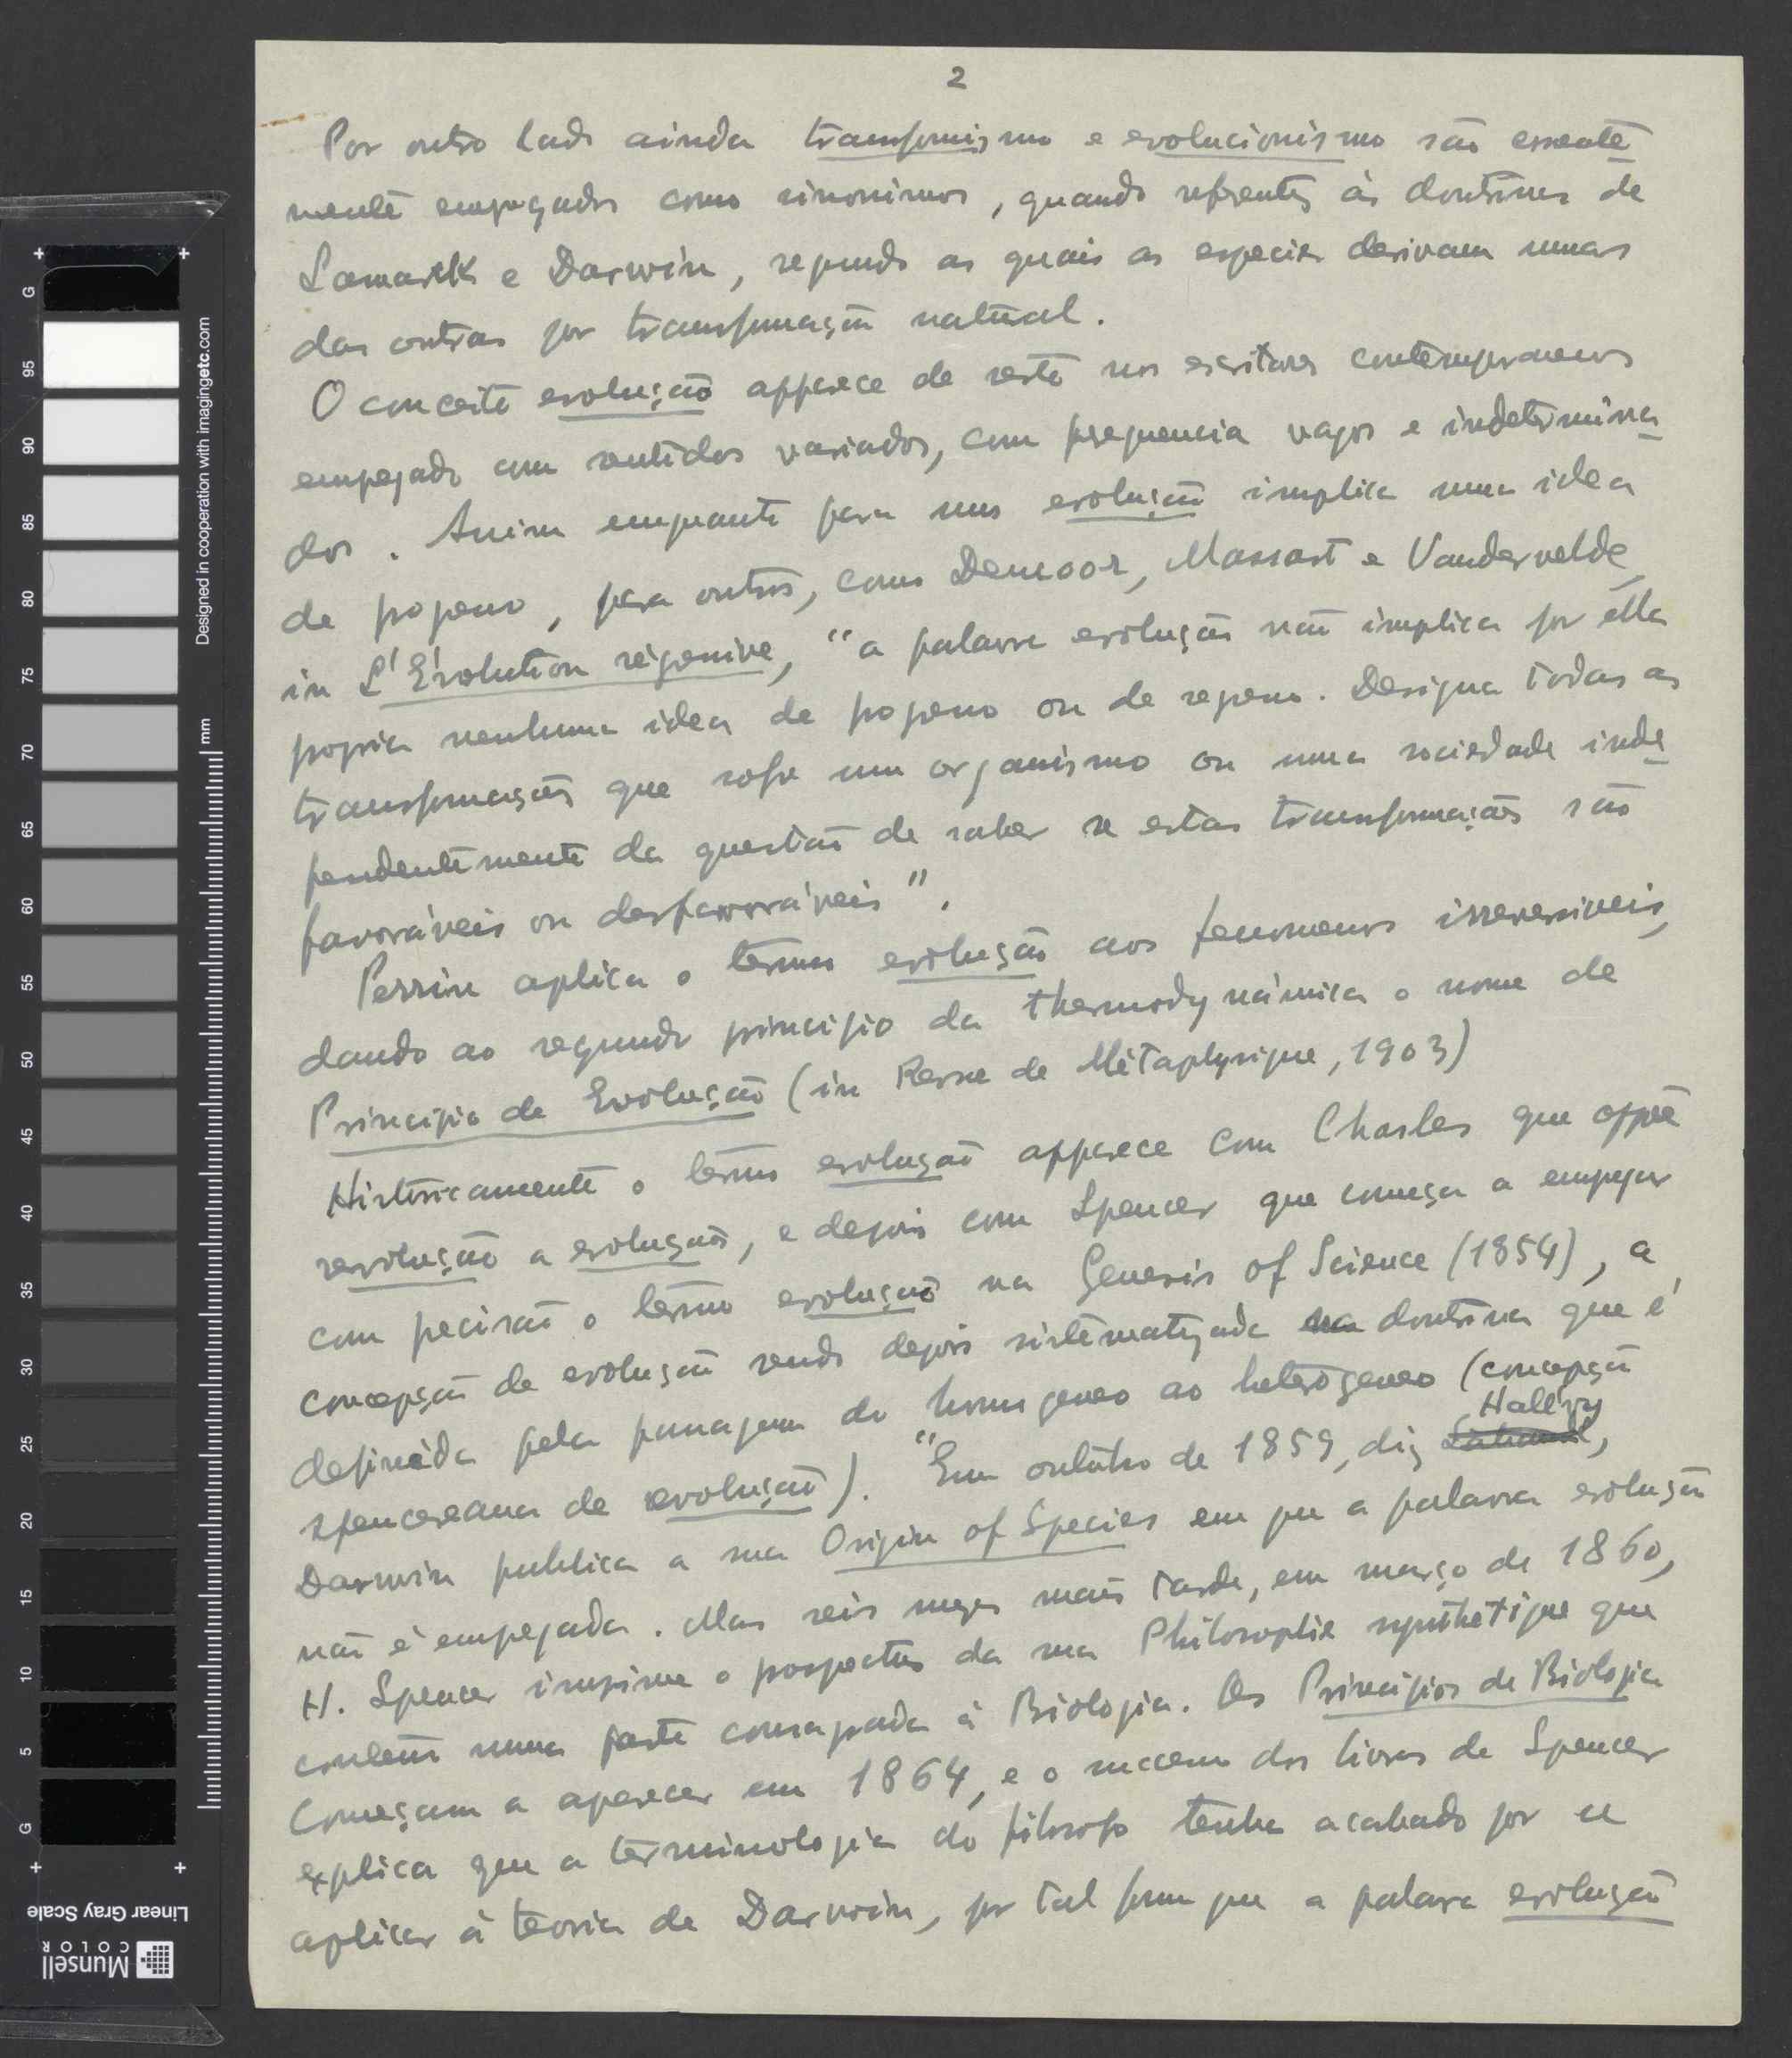 2
Por outro lado ainda transformismo e evolucionismo são
mente empregados como sinonimos, quando referentes ás doutrinas de
Lamarck e Darwin, segundo as quais as especies derivam umas
das outras por transformação natural.
O conceito evolução apparece de resto nos escritores contemporaneos
empregado com sentidos variados, com frequencia vagos e indetermina-
dos. Assim emquanto para uns evolução implica uma idea
de progresso, para outros, como Demoor, Massart e Vandervelde,
in L'Évolution régressive, "a palavra evolução não implica por ella
propria nenhuma idea de progresso ou de regresso. Designa todas as
transformações que sofre um organismo ou uma sociedade inde-
pendentemente da questão de saber se estas transformações são
favoráveis ou desfavoráveis".
Perrin aplica o termo evolução aos fenomenos irreversiveis,
dando ao segundo principio da thermodynámica o nome de
Principio de Evolução (in Revue de Métaphysique, 1903)
Historicamente o termo evolução apparece com Charles que oppõe
revolução a evolução, e depois com Spencer que começa a empregar
com precisão o termo evolução na Genesis of Science (1854), a
concepção de evolução sendo depois sistematizada na doutrina que é
definida pela passagem do homogeneo ao heterogeneo (concepção
spencereana de evolução). "Em outubro de 1859, diz Halévy,
Darwin publica a sua Origin of Species em que a palavra evolução
não é empregada. Mas seis mezes mais tarde, em março de 1860,
H. Spencer imprime o prospectus da sua Philosophie synthetique que
contem uma parte consagrada á Biologia. Os Principios de Biologia
começam a aparecer em 1864, e o successo dos livros de Spencer
explica que a terminologia do filosofo tenha acabado por se
aplicar á teoria de Darwin, por tal forma que a palavra evolução
Designed in cooperation with imagingetc.com
mm
G 95 90 85 80 75 70 65 60 55 50 45 40 35 30 25 20 15 10 5 G
Linear Gray Scale
Munsell
COLOR